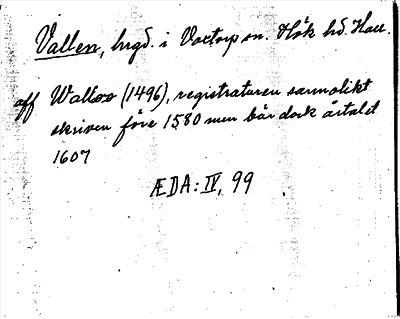 Vallen, hrgd. i Voxtorps sn. Hök hd. Hall.
aff Walloo (1496), registraturen sannolikt
skriven före 1580 men bär dock årtalet
1607
ÆDA: IV, 99